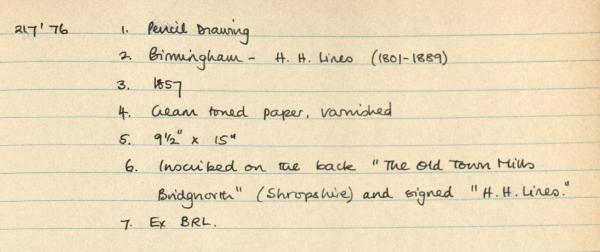 217'76 1. Pencil Drawing
2. Birmingham - H. H. Lines (1801-1889)
3. 1857
4. Cream toned paper, varnished
5. 9½" x 15"
6. Inscribed on the back "The Old Town Mills
Bridgnorth" (Shropshire) and signed "H. H. Lines."
7. Ex BRL.